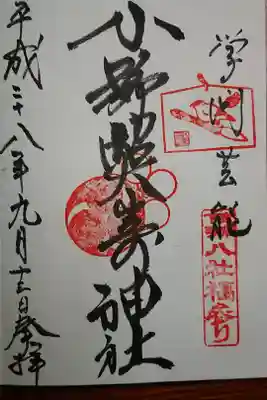 学問芸能
下町八社福参り
小野照崎神社
平成二十八年九月十三日奉拝